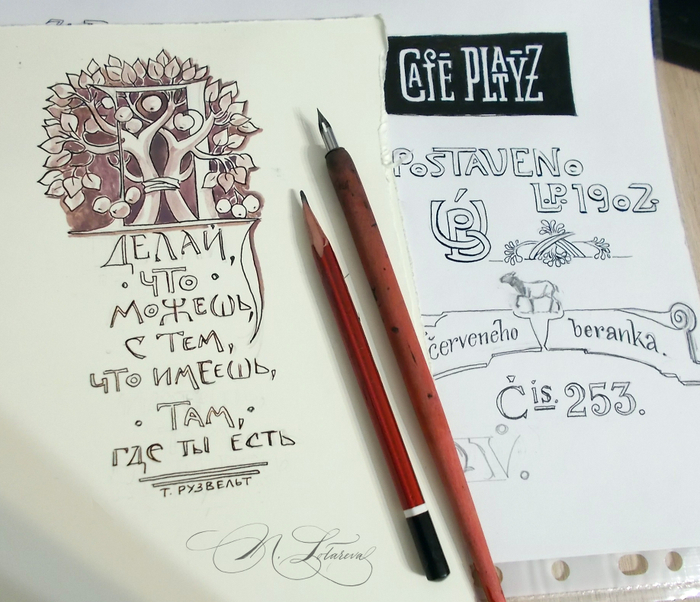 ДЕЛАЙ,
· ЧТО ·
МОЖЕШЬ,
С ТЕМ,
ЧТО ИМЕЕШЬ,
· ТАМ, ·
ГДЕ ТЫ ЕСТЬ
Т. РУЗВЕЛЬТ
N. Lotareva
CAFÉ PLATÝZ
POSTAVENO
L.P. 1902
červeného beranka.
Čís. 253.
IV.